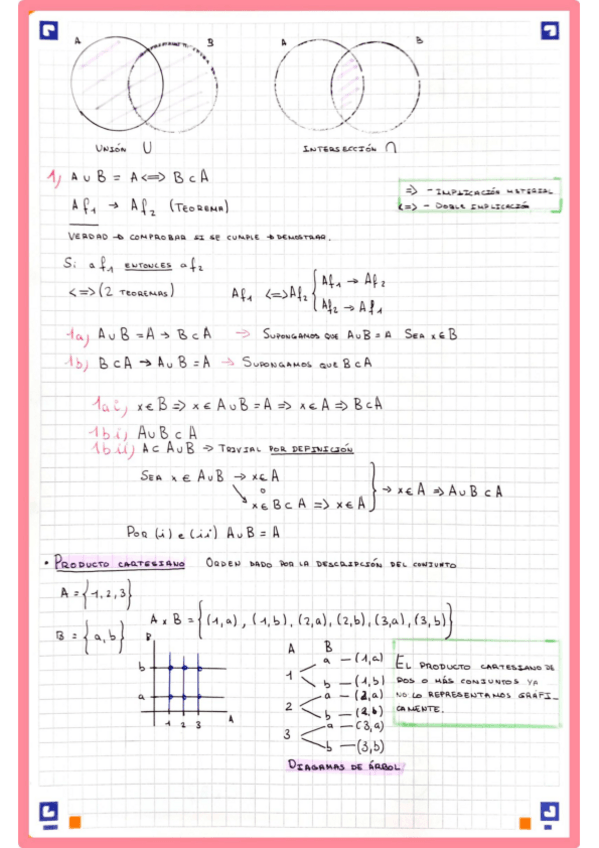 A B A B
UNIÓN U INTERSECCIÓN ∩
1) A ∪ B = A <=> B ⊂ A
=> - IMPLICACIÓN MATERIAL
<=> - DOBLE IMPLICACIÓN
Af₁ → Af₂ (TEOREMA)
VERDAD → COMPROBAR SI SE CUMPLE → DEMOSTRAR.
Si af₁ ENTONCES af₂
<=> (2 TEOREMAS) Af₁ <=> Af₂ { Af₁ → Af₂
Af₂ → Af₁
1a) A∪B = A → B⊂A → SUPONGAMOS QUE A∪B = A SEA x∈B
1b) B⊂A → A∪B = A → SUPONGAMOS QUE B⊂A
1ai) x∈B => x∈A∪B = A => x∈A => B⊂A
1bi) A∪B ⊂ A
1bii) A⊂ A∪B → TRIVIAL POR DEFINICIÓN
SEA x ∈ A∪B → x∈A
o
x∈B⊂A => x∈A } → x∈A => A∪B ⊂ A
POR (i) e (ii) A∪B = A
• PRODUCTO CARTESIANO ORDEN DADO POR LA DESCRIPCIÓN DEL CONJUNTO
A = {1,2,3}
A x B = {(1,a), (1,b), (2,a), (2,b), (3,a), (3,b)}
B = {a,b}
B
b
a
1 2 3 A
A B
1 a — (1,a)
b — (1,b)
2 a — (2,a)
b — (2,b)
3 a — (3,a)
b — (3,b)
DIAGRAMAS DE ÁRBOL
EL PRODUCTO CARTESIANO DE
DOS O MÁS CONJUNTOS YA
NO LO REPRESENTAMOS GRÁFI-
CAMENTE.